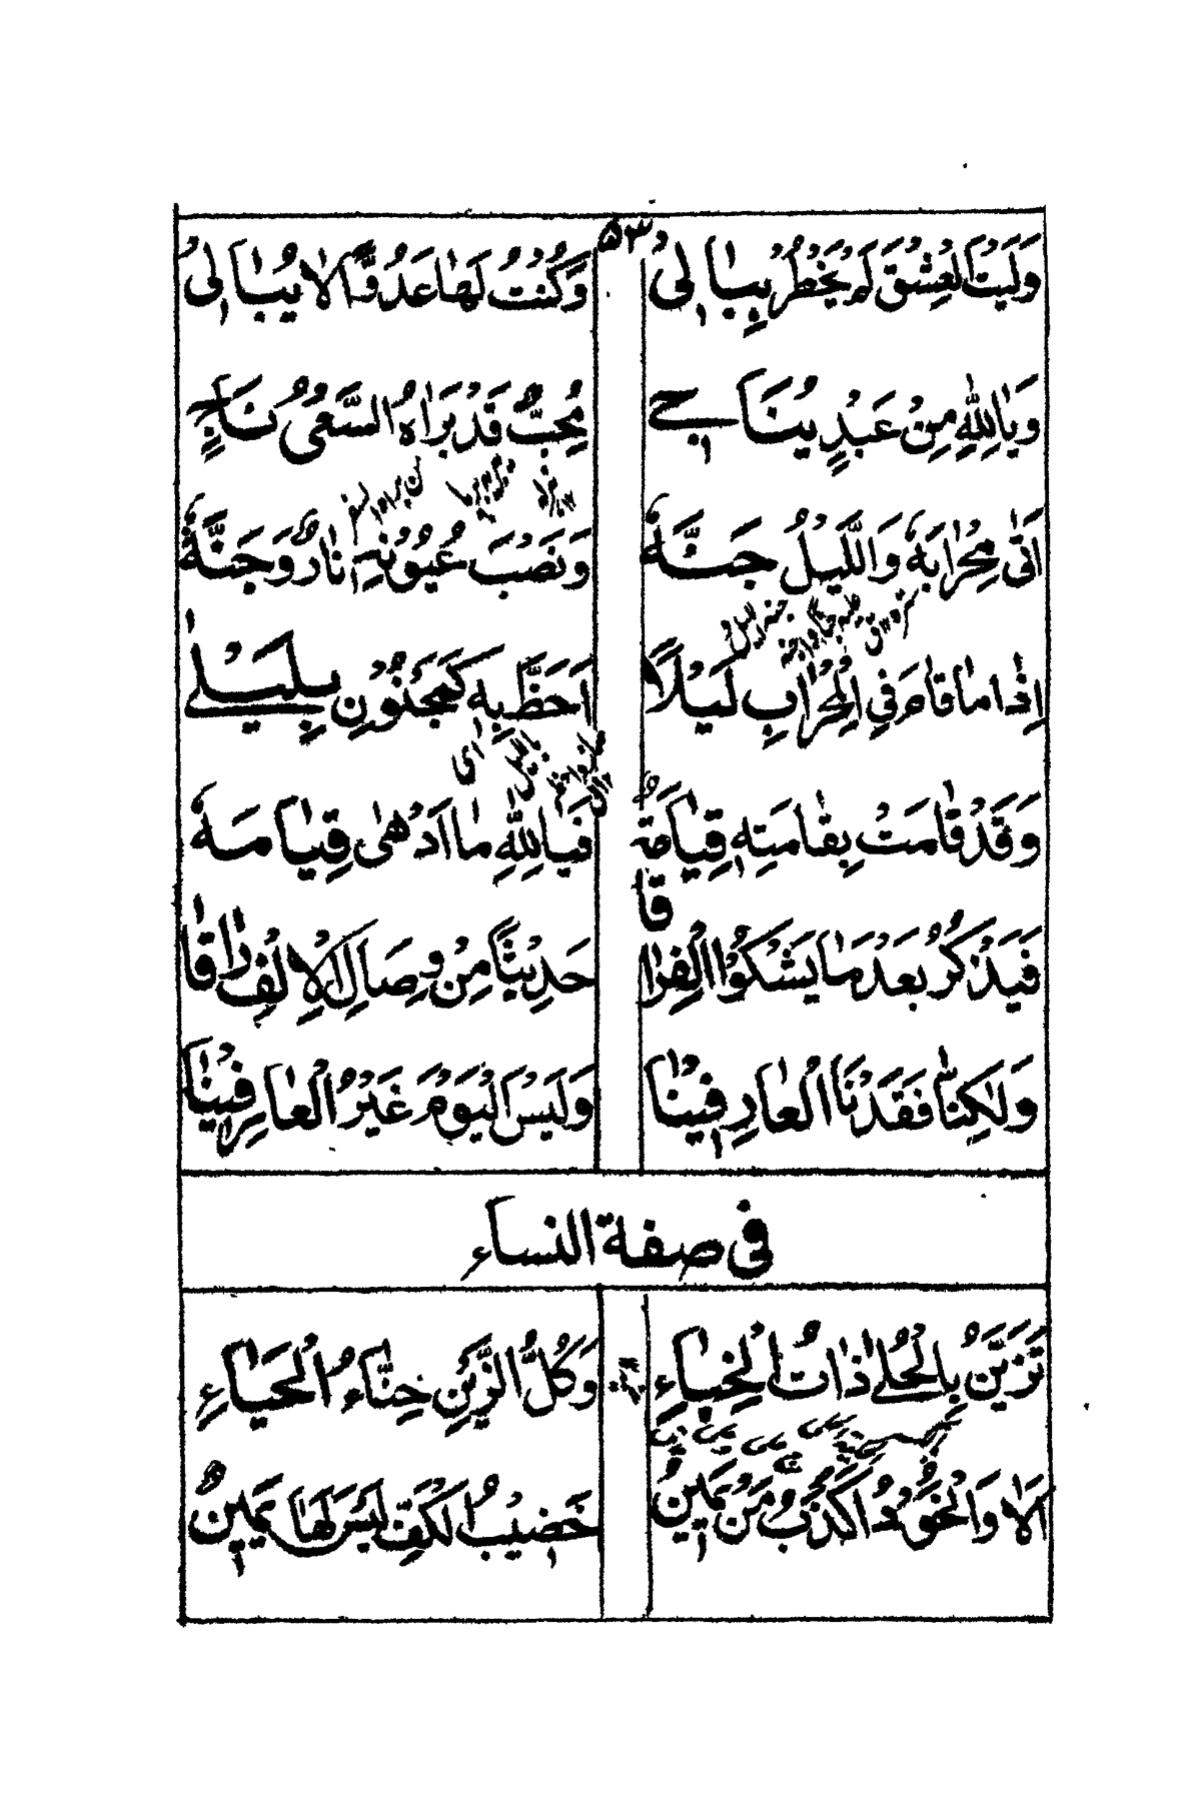 ۵۳
وَلَيْتَ الْعِشْقَ لَمْ يَخْطُرْ بِبَالِيْ وَكُنْتُ لَهَا عَدُوًّا لَا يُبَالِيْ
وَبِاللّٰهِ مِنْ عَبْدٍ يُنَاجِيْ مُحِبٌّ قَدْ بَرَاهُ السَّعْیُ نَاجٍ
اَتٰى مِحْرَابَهٗ وَالَّليْلُ جَنَّهٗ وَنَصْبَ عُيُوْنِهٖ نَارٌ وَجَنَّهْ
اِذَا مَا قَامَ فِي الْمِحْرَابِ لَيْلًا اَحَظَّ بِهٖ كَمَجْنُوْنٍ بِلَيْلٰى
وَقَدْ قَامَتْ بِقَامَتِهٖ قِيَامَةٌ فَيَا لِلّٰهِ مَا اَدْهٰى قِيَامَهْ
فَيَذْكُرُ بَعْدَ مَا يَشْكُوْا الْفِرَاقَا حَدِيْثًا مِنْ وِصَالِ الْاِلْفِ رَاقَا
وَلٰكِنَّا فَقَدْنَا الْعَارِفِيْنَا وَلَيْسَ الْيَوْمَ غَيْرُ الْعَارِ فِيْنَا
فی صفة النساء
تَزَيَّنُ بِالْحُلِيِّ ذَاتُ الْخِبَاءِ وَكُلُّ الزَّيْنِ حِنَّاءُ الْحَيَاءِ
اَلَا وَالْخَوْدُ اَكْذَبُ مَنْ يَمِيْنُ خَضِيْبُ الْكَفِّ لَيْسَ لَهَا يَمِيْنٌ